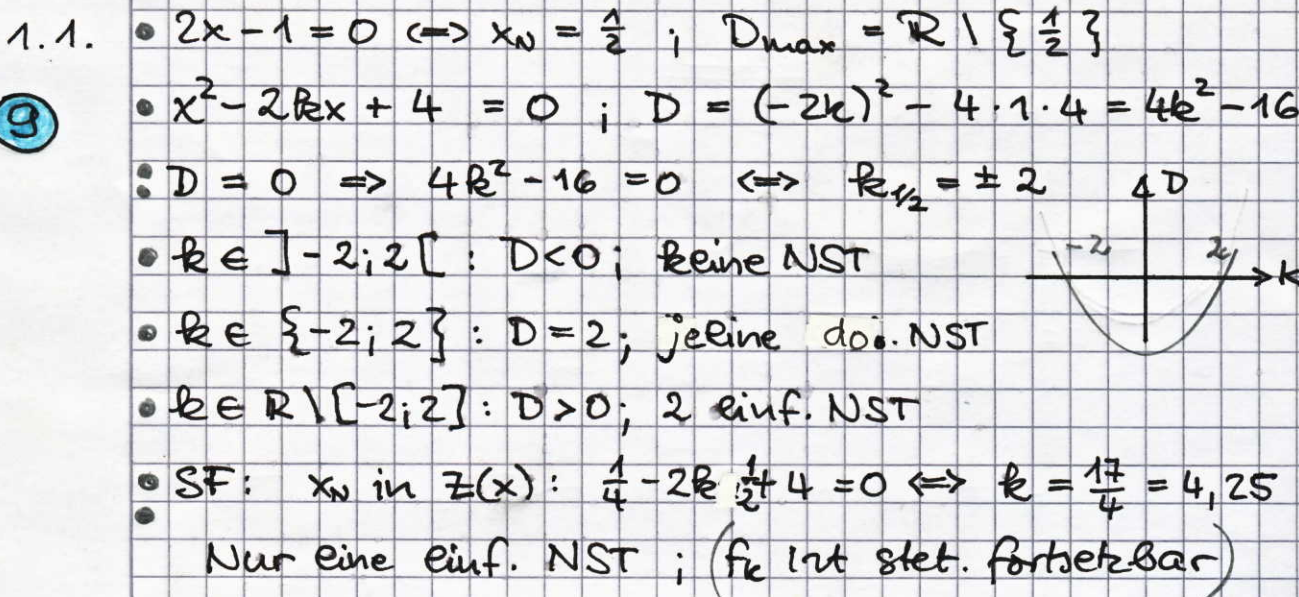 1.1. • 2x - 1 = 0 <=> x_N = 1/2 ; Dmax = ℝ \ { 1/2 }
9 • x² - 2kx + 4 = 0 ; D = (-2k)² - 4·1·4 = 4k² - 16
: D = 0 => 4k² - 16 = 0 <=> k_1/2 = ± 2
D
• k ∈ ]-2;2[ : D<0; keine NST
-2 2 k
• k ∈ {-2;2} : D = 2; jeeine do. NST
• k ∈ ℝ\[-2;2] : D > 0; 2 einf. NST
: SF: x_N in Z(x) : 1/4 - 2k·1/2 + 4 = 0 <=> k = 17/4 = 4,25
Nur eine einf. NST ; (f_k ist stet. fortsetzbar)